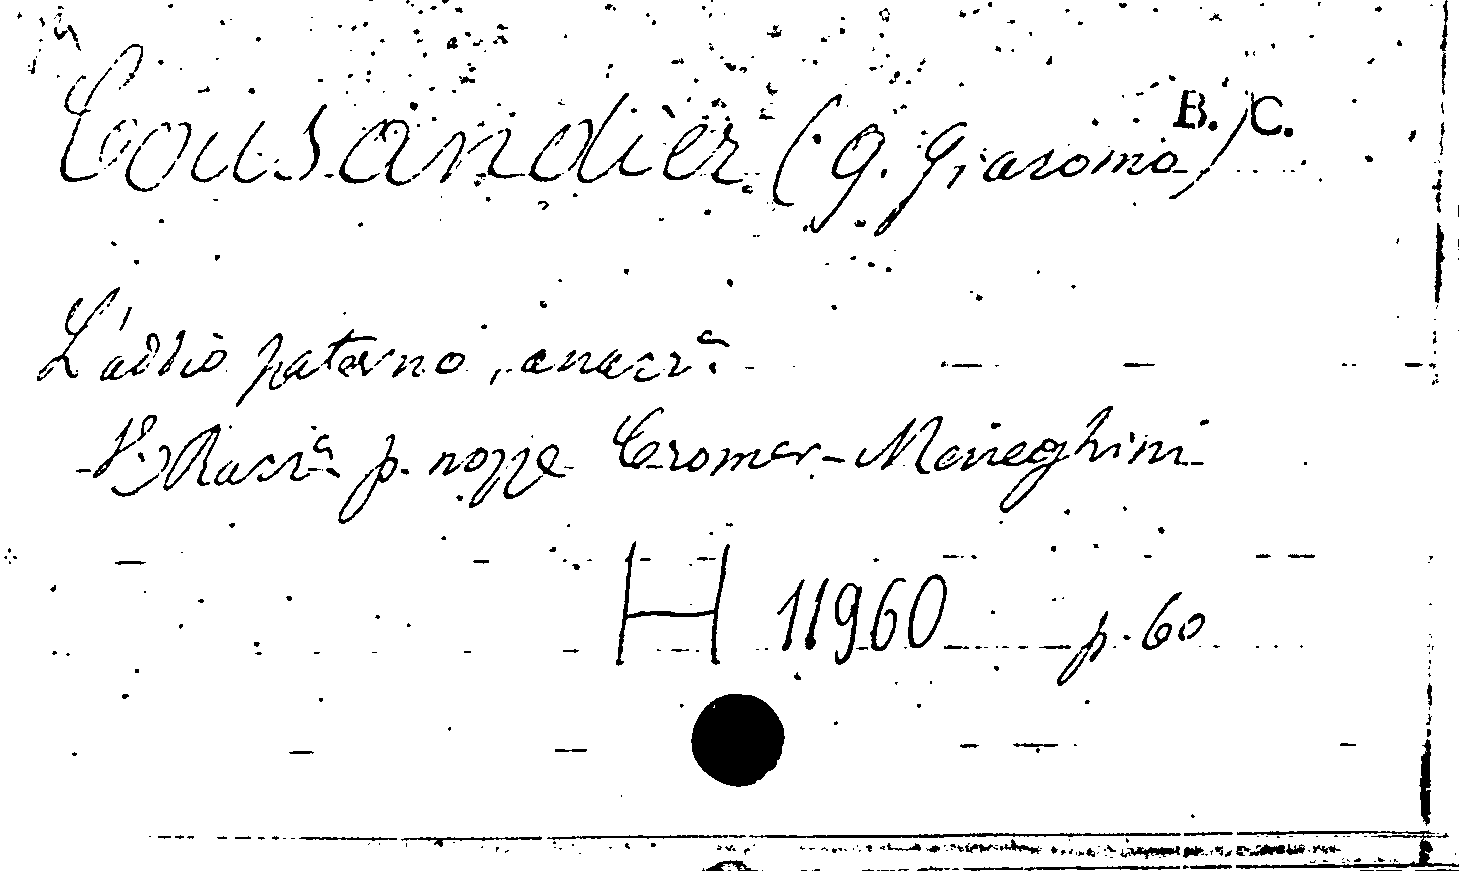 B. C.
Tousandier (G. Giacomo)
L'addio paterno, anacr.ª
V. Racc.ª p. nozze Cromer-Meneghini
H 11960 p. 60